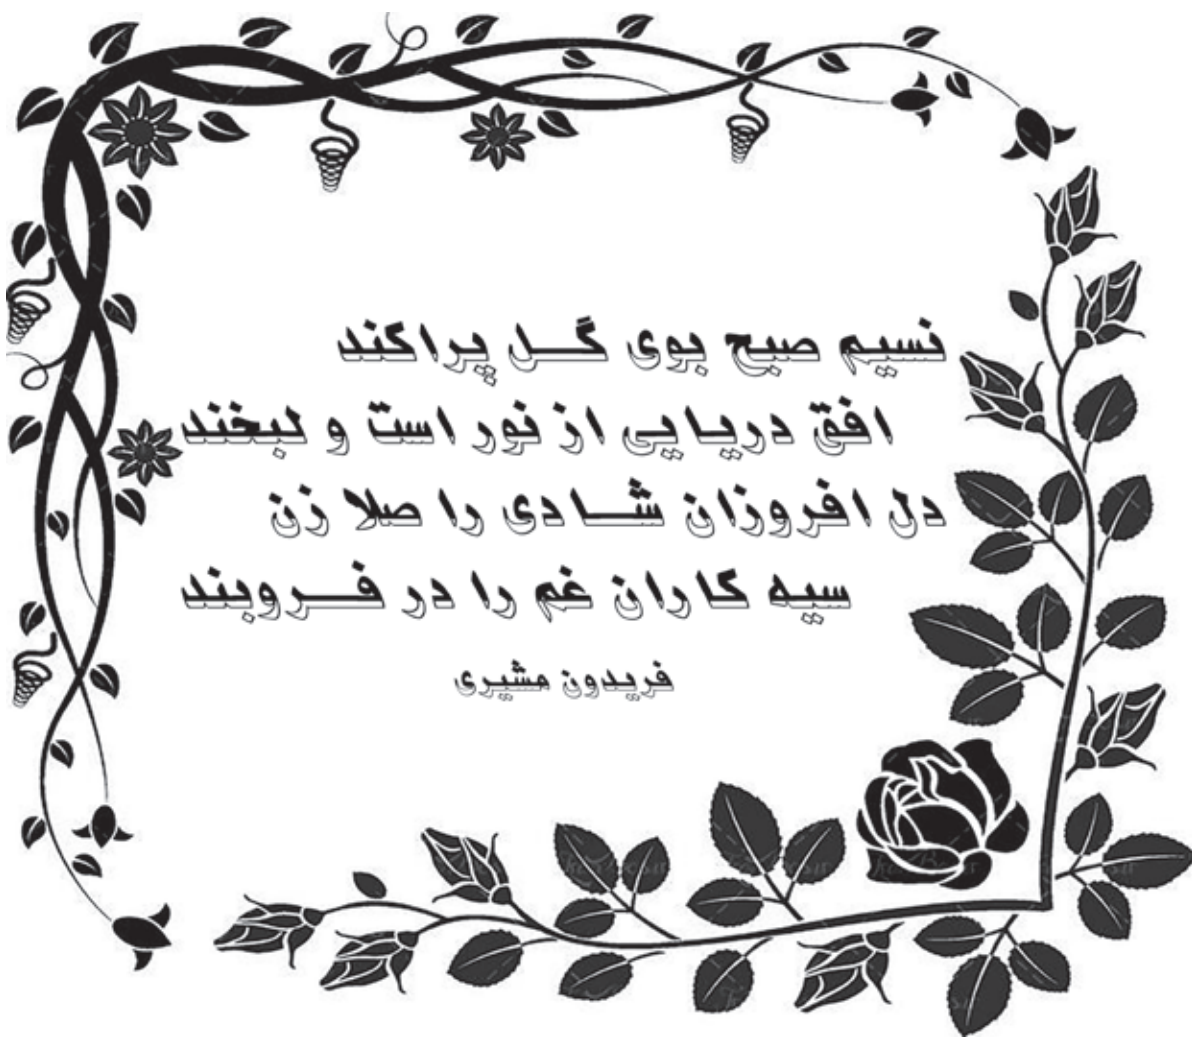 نسیم صبح بوی گل پراکند
افق دریایی از نور است و لبخند
دل افروزان شادی را صلا زن
سیه کاران غم را در فروبند
فریدون مشیری